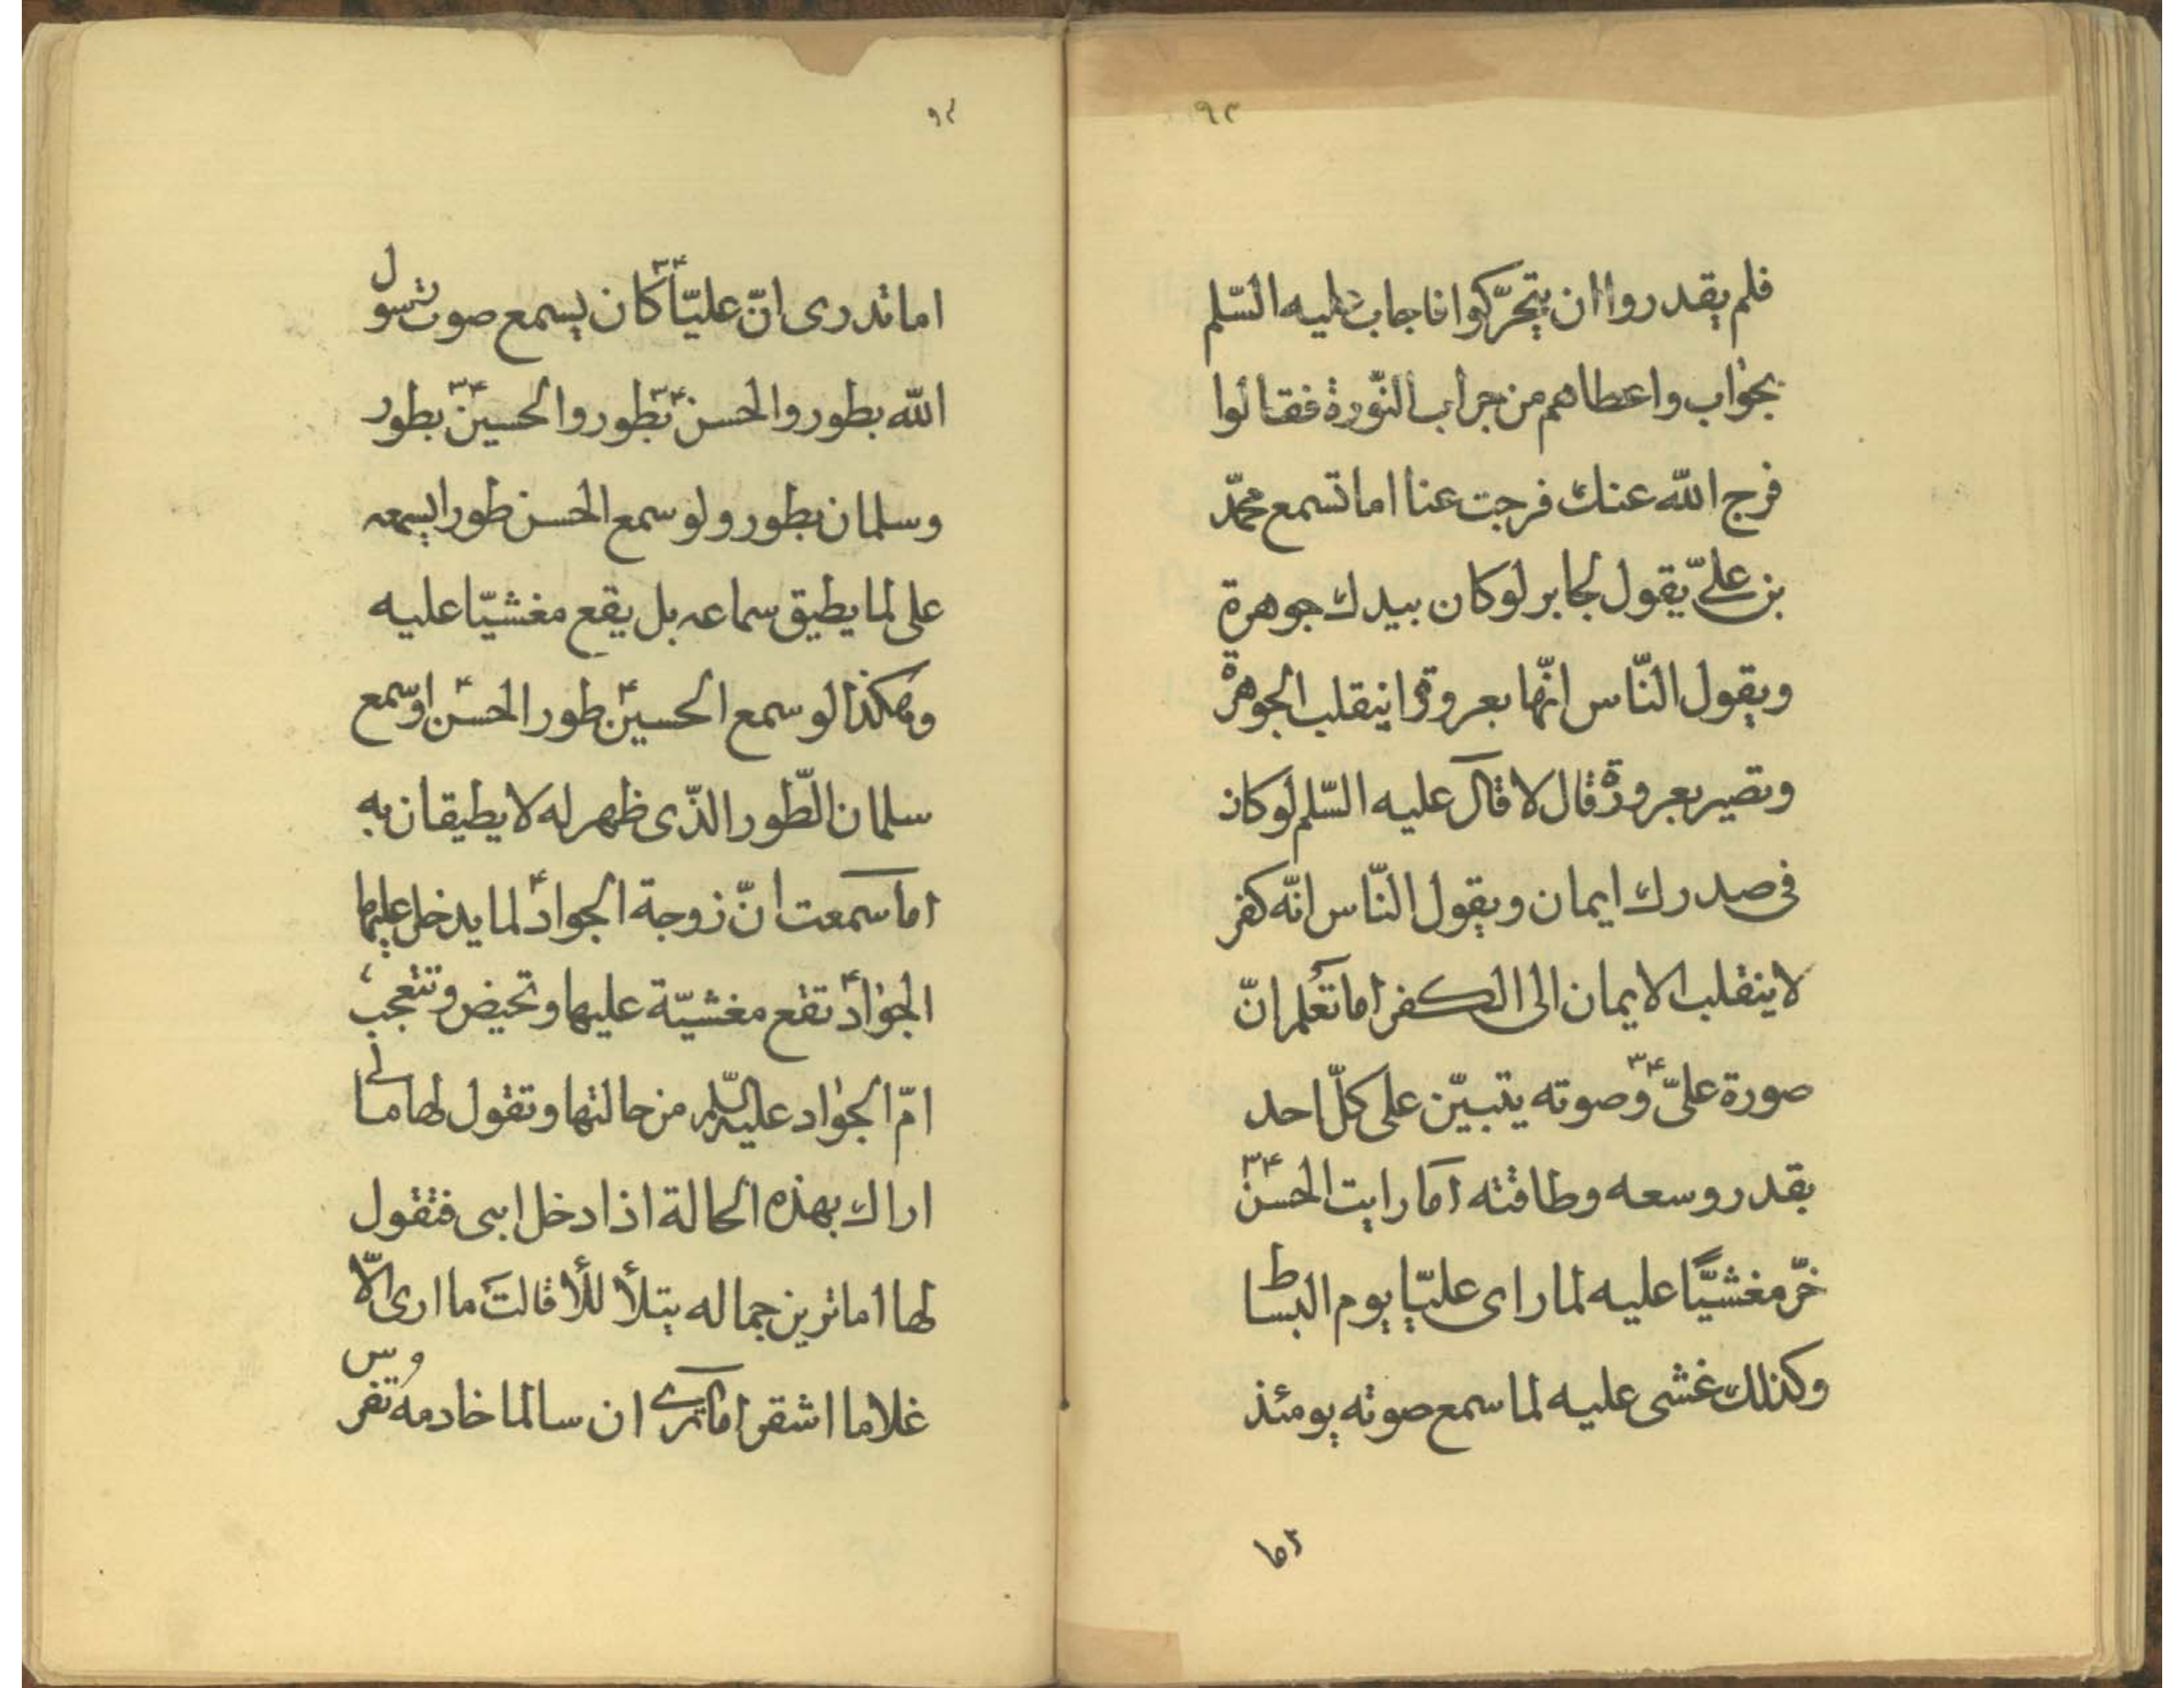 ٩٢
فلم يقدروا ان يتحرّكوا فاجاب عليه السّلم
بجواب واعطاهم من جراب النّورة فقالوا
فرج الله عنك فرجت عنا اما تسمع محمّد
بن علىّ يقول لجابر لو كان بيدك جوهرة
ويقول النّاس انّها بعروة اينقلب الجوهرة
وتصير بعروة قال لا قال عليه السّلم لو كان
فى صدرك ايمان ويقول النّاس انّه كفر
لا ينقلب الايمان الى الكفر اما تعلم انّ
صورة علىّ ع٣ وصوته يتبيّن على كلّ احد
بقدر وسعه وطاقته اما رايت الحسن ع٣
خرّ مغشيًّا عليه لما راى عليّا يوم البساط
وكذلك غشى عليه لما سمع صوته يومئذ
اما
٩٢
اما تدرى انّ عليّا ع٣ كان يسمع صوت رسول
الله بطور والحسن ع٣ بطور والحسين ع٣ بطور
وسلمان بطور ولو سمع الحسن طورا يسمعه
على لما يطيق سماعه بل يقع مغشيّا عليه
وهكذا لو سمع الحسين ع طور الحسن ع او سمع
سلمان الطّور الذّى ظهر له لا يطيقان به
اما سمعت انّ زوجة الجواد ع لما يدخل عليها
الجواد ع تقع مغشيّة عليها وتحيض وتتعجب
امّ الجواد عليه السّلم من حالتها وتقول لها ما لى
اراك بهذه الحالة اذا دخل ابنى فتقول
لها اما ترين جماله يتلألأ قالت ما ارى الّا
غلاما اشقر اما ترى ان سالما خادمه